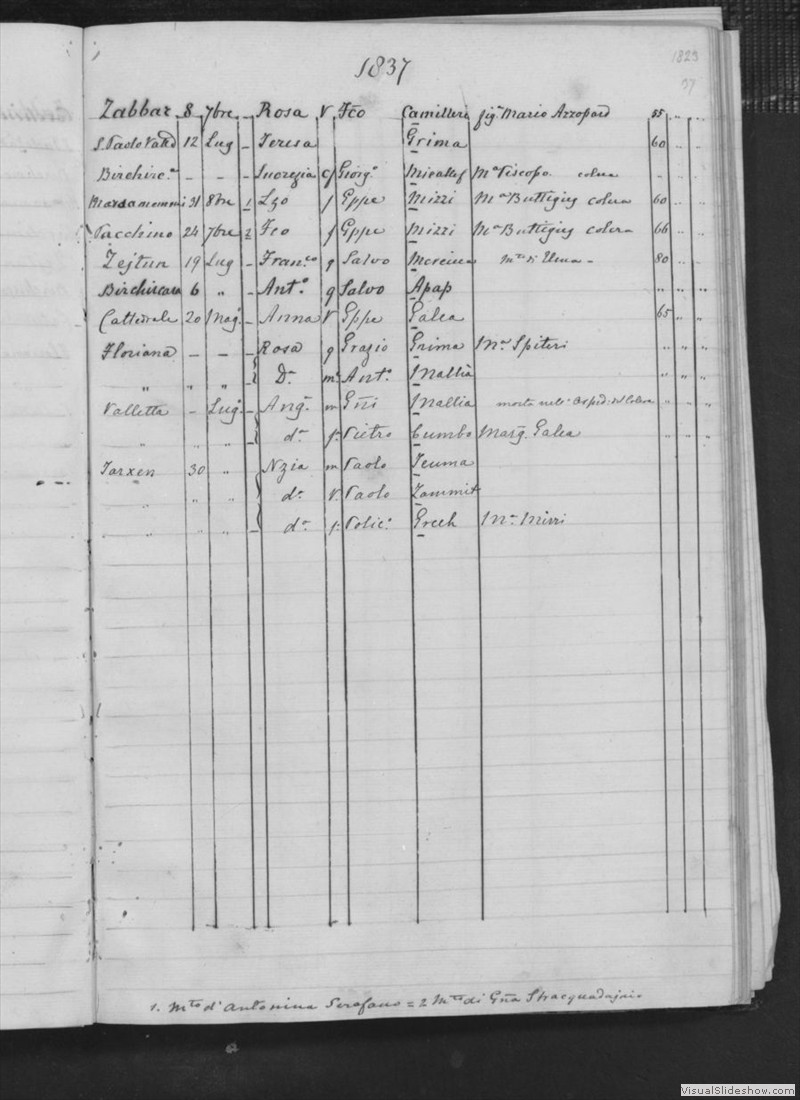 1837
1829
37
Zabbar 8 7bre - Rosa V Fco Camilleri fig. Mario Azzopard 55 " "
S. Paolo Vall. 12 Lug - Teresa Grima 60 " "
Birchirc.a - - - Lucrezia Giorg.o Micallef M.a Piscopo colera - " "
Marsamommi 31 8bre 1 Lzo f Gppe Mizzi M.a Buttigieg colera 60 " "
Pacchino 24 7bre 2 Fco f Gppe Mizzi M.a Buttigieg colera 66 " "
Zejtun 19 Lug - Fran.co q Salvo 80 " "
Birchircara 6 " - Ant.o q Salvo Apap " " "
Cattedrale 20 Mag. - Anna V Gppe Galea 65 " "
Floriana - - - Rosa q Grazio Grima M.a Spiteri " " "
" " " - D.a m. Ant.o Mallia " " "
Valletta - Lug. - Ang. m Gñi Mallia morta nell' Osped. " " "
" " " - d.a f. Pietro Cumbo Marg. Galea " " "
Tarxen 30 " - Nzia m Paolo Teuma
" " " d.a V. Paolo Zammit
" " " - d.a f. Felic.e Grech M.a Mizzi
1. M.to d' Antonina Serafano = 2 M.to di Gña Stracquadajnio
VisualSlideshow.com